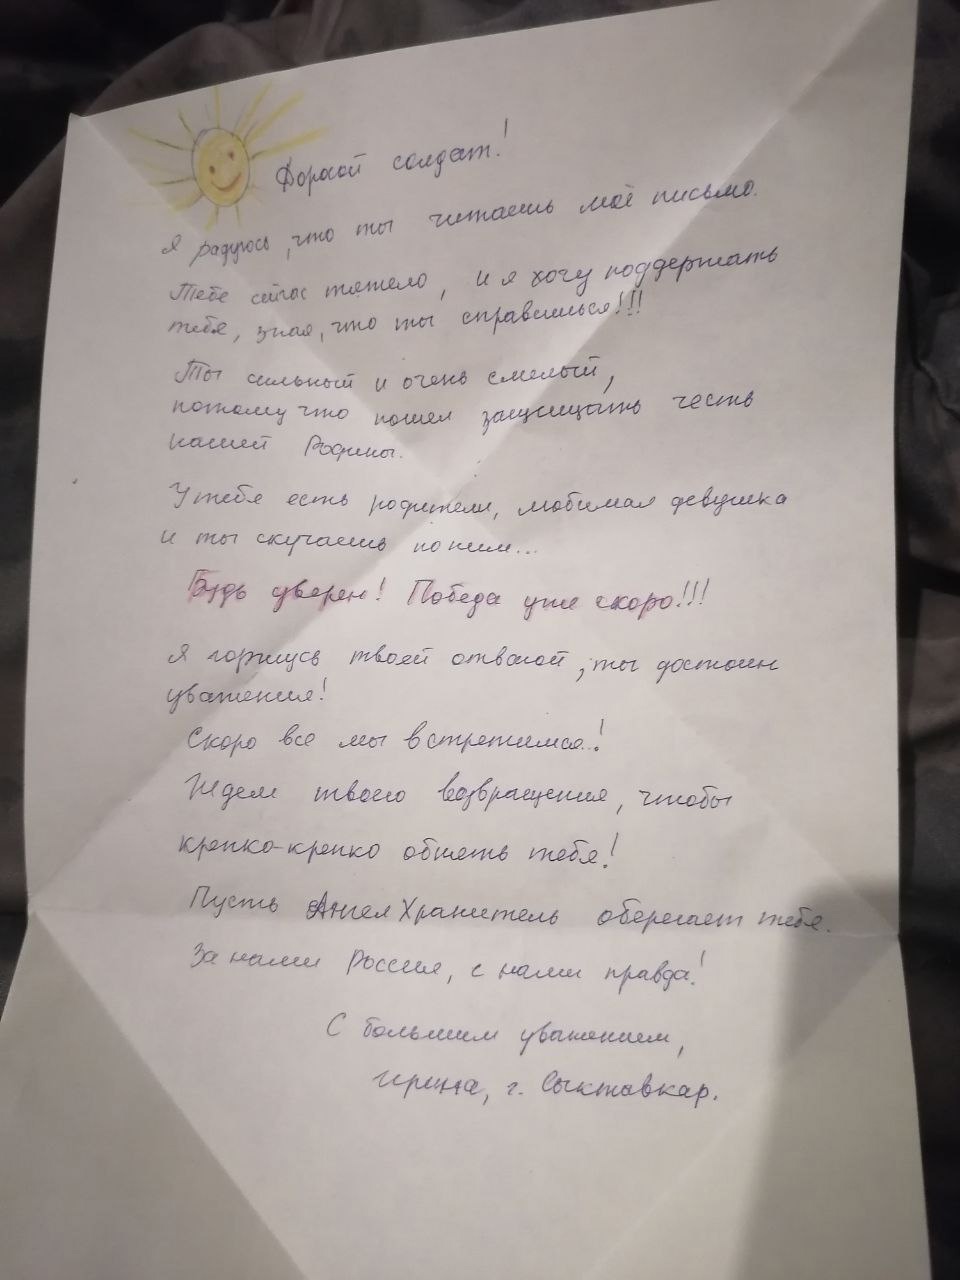 Дорогой солдат!
Я радуюсь, что ты читаешь моё письмо.
Тебе сейчас тяжело, и я хочу поддержать
тебя, зная, что ты справишься!!!
Ты сильный и очень смелый,
потому что пошел защищать честь
нашей Родины.
У тебя есть родители, любимая девушка
и ты скучаешь по ним...
Будь уверен! Победа уже скоро!!!
Я горжусь твоей отвагой, ты достоин
уважения!
Скоро все мы встретимся!
Ждем твоего возвращения, чтобы
крепко-крепко обнять тебя!
Пусть Ангел Хранитель оберегает тебя.
За нами Россия, с нами правда!
С большим уважением,
Ирина, г. Сыктывкар.